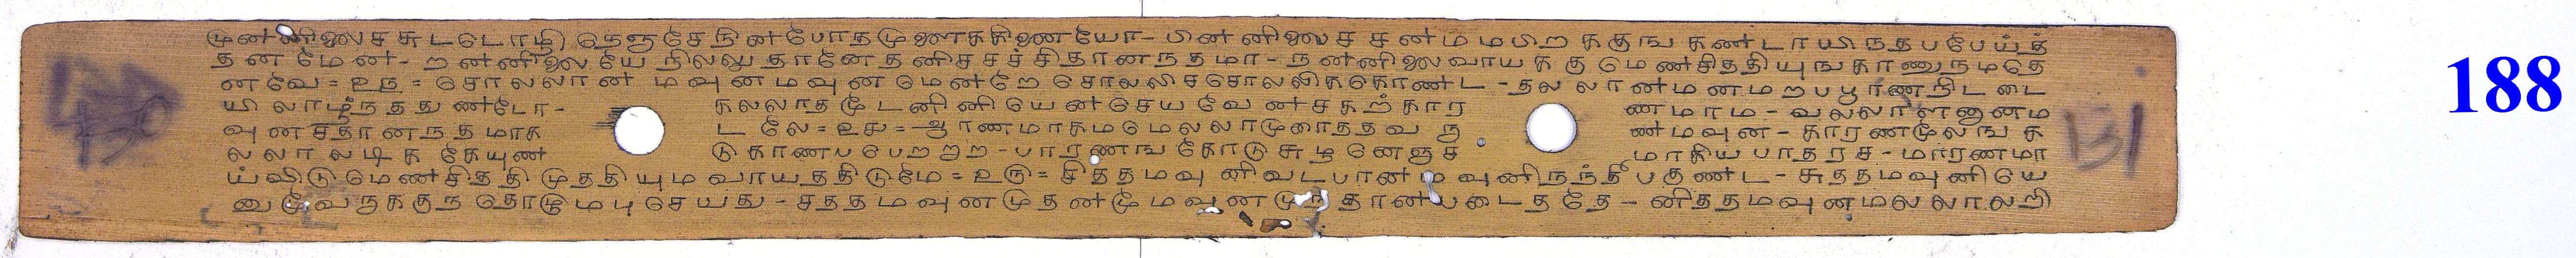 முனனிலைச சுடடொழி நெஞசே நினபோதமுளைககிணையோ - பினனிலைச சனமமபிறககுங கணடாயிநதப பேயத
தனமேன - றனனிலையே நிலலு தானேதனிசசசசிதானநதமா - நனனிலை வாயககுமெணசிததியுஙகாணுநமதே
னவே = உரு = சொலலான மவுனமவுனமெனறே சொலலிசசொலலிககொணட - தலலானமனமறபபூணநிடடை
யிலாழநததுணடோ - கலலாதமூடனினியெனசெயவேனசகறகார ணமாம - வலலாளனுனம
வுனசதானநதமாக டலே = உசு = ஆரணமாகமமெலலாமுரைததவரு ணமவுன - காரணமூலஙக
லலாலடிககேயுண டுகாணபபெறறற - பாரணஙகோடுசுழனெஞச மாகியபாதரச - மாரணமா
யவிடுமெணசிததி முததியும வாயததிடுமே = உரு = சிததமவுனிவடபானமவுனிநநதீபகுணட - சுததமவுனியெ
னுமூவருககுநதொழுமபுசெயது - சததமவுனமுதனமூமவுனமுநதானபடைததே - னிததமவுனமலலாலறி
188
131